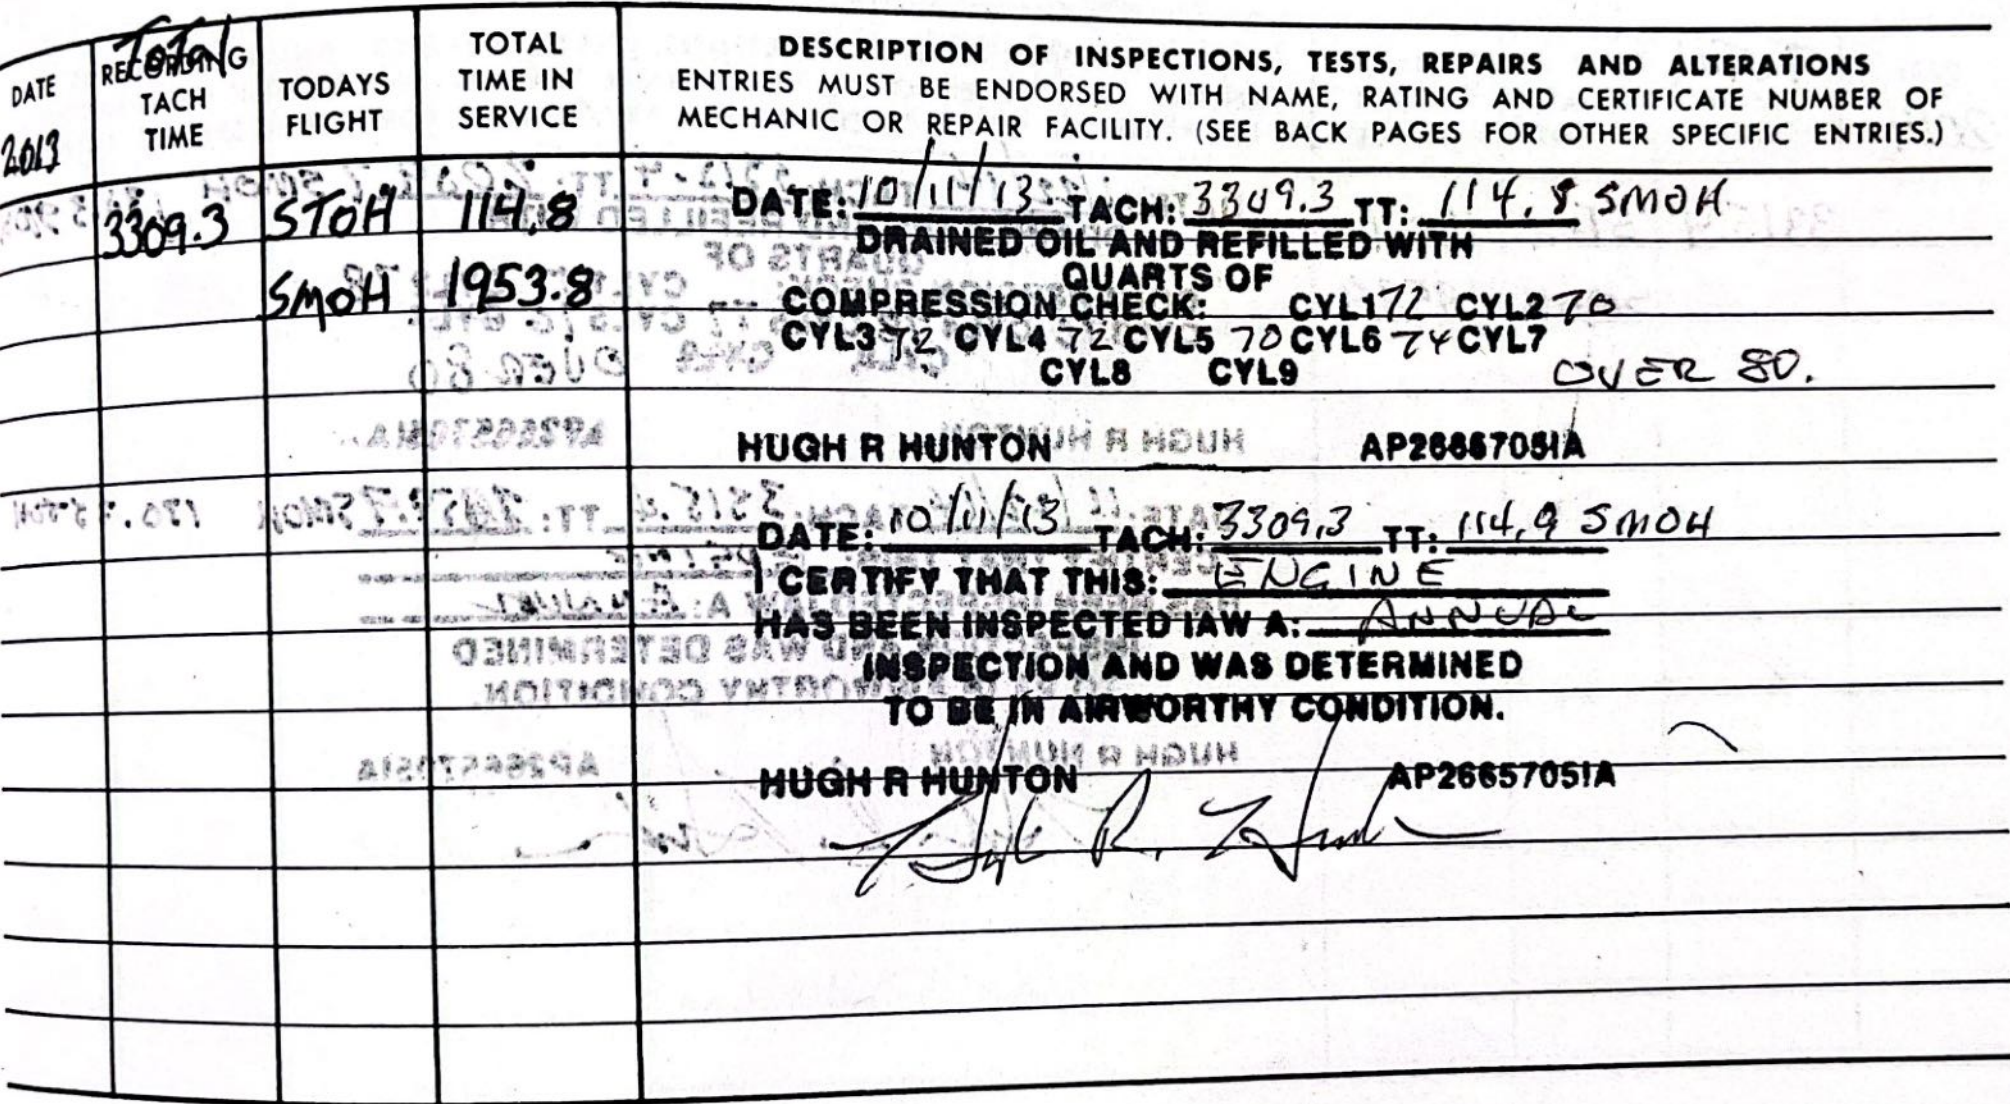 DATE
2013
RECORDING
Total
TACH
TIME
TODAYS
FLIGHT
TOTAL
TIME IN
SERVICE
DESCRIPTION OF INSPECTIONS, TESTS, REPAIRS AND ALTERATIONS
ENTRIES MUST BE ENDORSED WITH NAME, RATING AND CERTIFICATE NUMBER OF
MECHANIC OR REPAIR FACILITY. (SEE BACK PAGES FOR OTHER SPECIFIC ENTRIES.)
3309.3 STOH 114.8
SMOH 1953.8
DATE: 10/11/13 TACH: 3309.3 TT: 114.8 SMOH
DRAINED OIL AND REFILLED WITH
QUARTS OF
COMPRESSION CHECK: CYL1 72 CYL2 70
CYL3 72 CYL4 72 CYL5 70 CYL6 74 CYL7
CYL8 CYL9 OVER 80.
HUGH R HUNTON AP26657051A
DATE: 10/11/13 TACH: 3309.3 TT: 114.9 SMOH
I CERTIFY THAT THIS: ENGINE
HAS BEEN INSPECTED IAW A: ANNUAL
INSPECTION AND WAS DETERMINED
TO BE IN AIRWORTHY CONDITION.
HUGH R HUNTON AP26657051A
Hugh R. Hunton